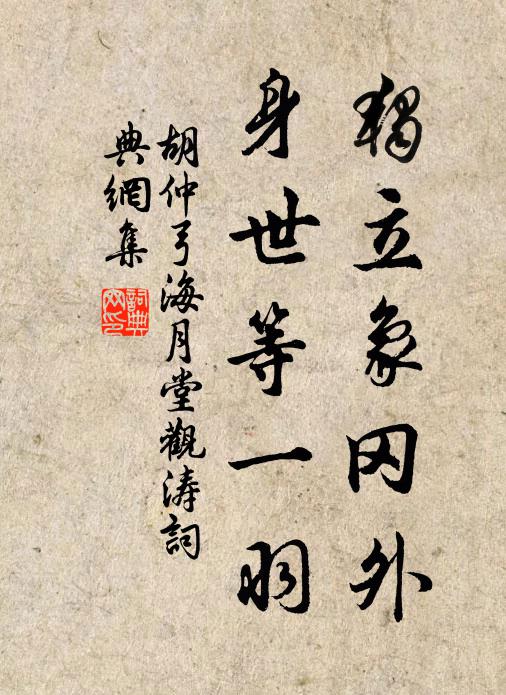 獨立象罔外
身世等一羽
胡仲弓海月堂觀涛詞
典網集
詞典
网印